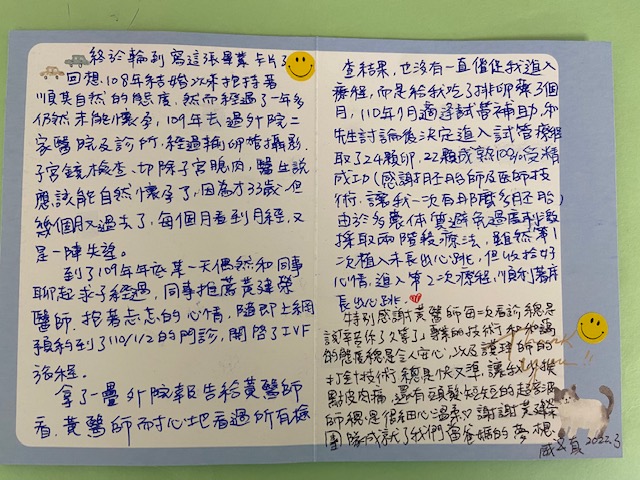 終於輪到寫這張畢業卡片了
回想108年結婚以來抱持著
順其自然的態度,然而經過了一年多
仍然未能懷孕,109年去過外院二
家醫院及診所,經過輸卵管攝影.
子宮鏡檢查、切除子宮瘜肉,醫生說
應該能自然懷孕了,因為才33歲.但
幾個月又過去了,每個月看到月經,又
是一陣失望。
到了109年年底某一天偶然和同事
聊起求子經過,同事推薦黃建榮
醫師.抱著忐忑的心情,隨即上網
預約到了110/1/2的門診,開啓了IVF
旅程.
拿了一疊外院報告給黃醫師
看.黃醫師耐心地看過所有檢
查結果,也沒有一直催促我進入
療程,而是給我吃了排卵藥3個
月,110年7月適逢試管補助,和
先生討論後決定進入試管療程
取了24顆卵.22顆成熟100%受精
成功(感謝胚胎師&醫師技
術.讓我一次有那麼多胚胎)
由於多囊体質避免過度刺激
採取兩階段療法,雖然第1
次植入未長出心跳,但收拾好
心情,進入第2次療程,順利著床
長出心跳.
特別感謝黃醫師每次看診總是
說辛苦你了久等了,專業的技術和和譪
的態度總是令人安心,以及護理師的
打針技術總是快又準,讓我少挨
點皮肉痛,還有頭髮短短的超音波
師總是很細心溫柔,謝謝黃建榮
團隊成就了我們當爸媽的夢想.
Thank
you!!
2022.3